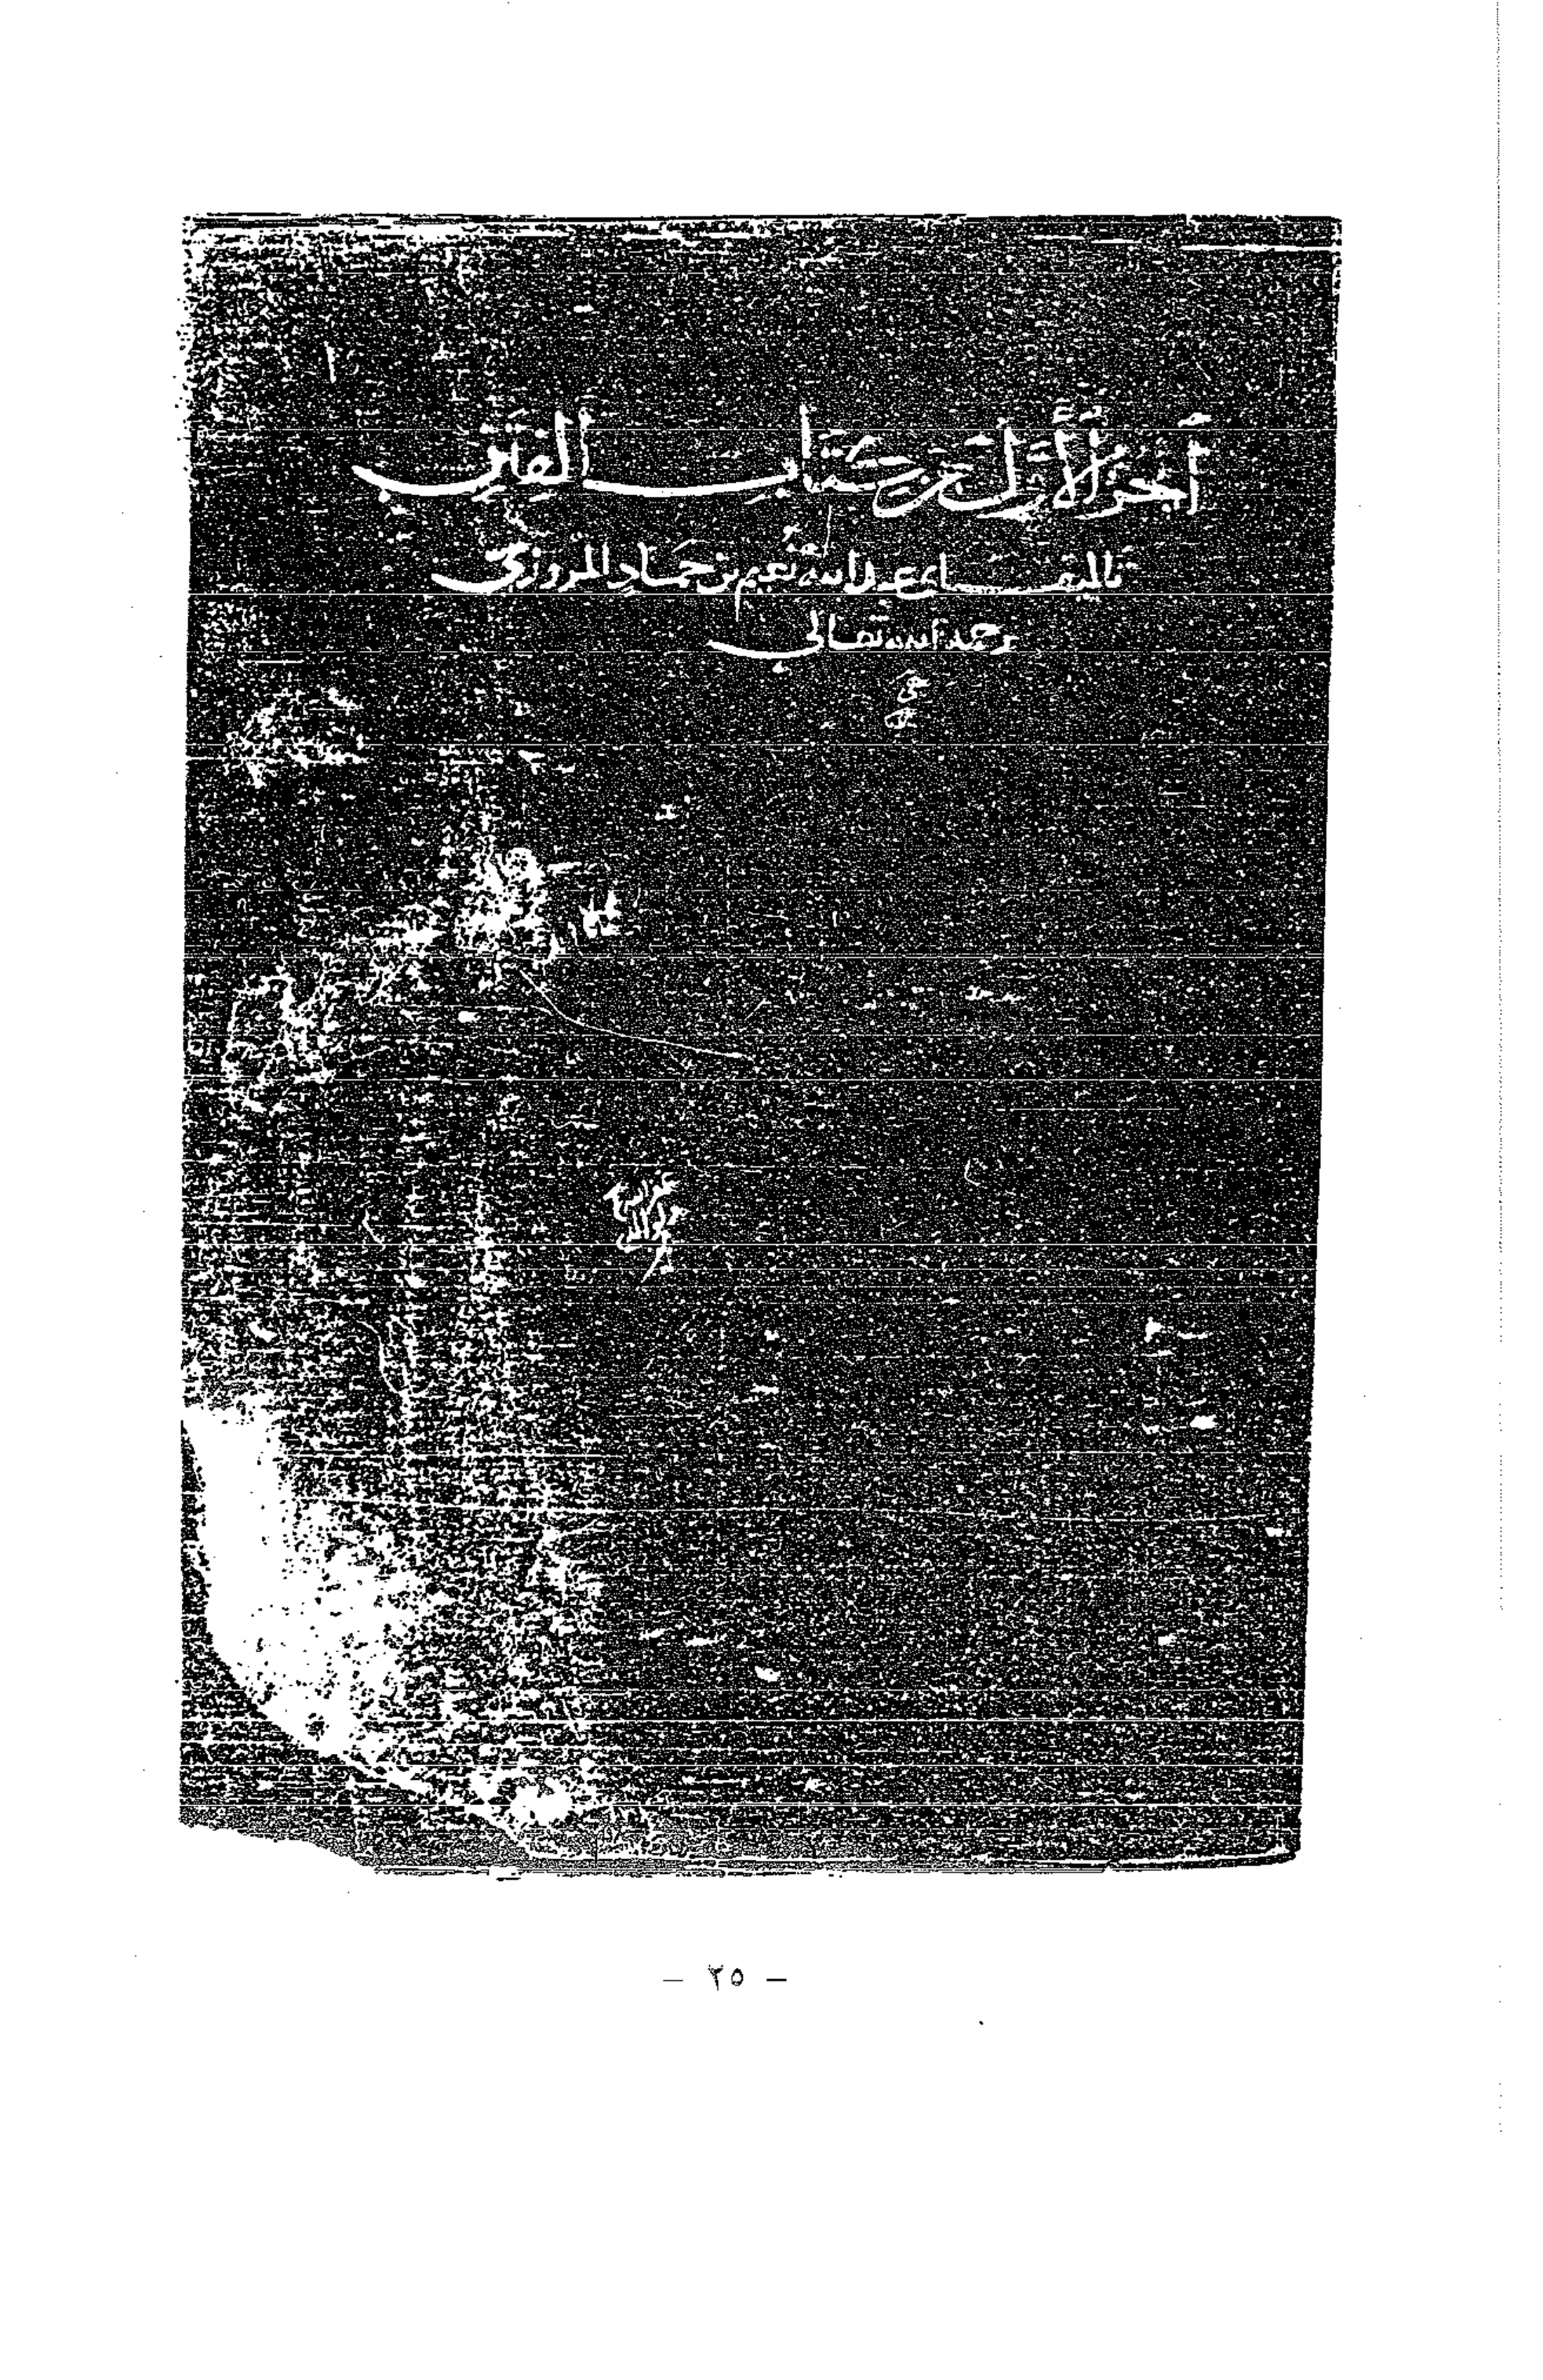 الجزء الأول من كتاب الفتن
تأليف أبي عبد الله نعيم بن حماد المروزي
رحمه الله تعالى
— ٢٥ —